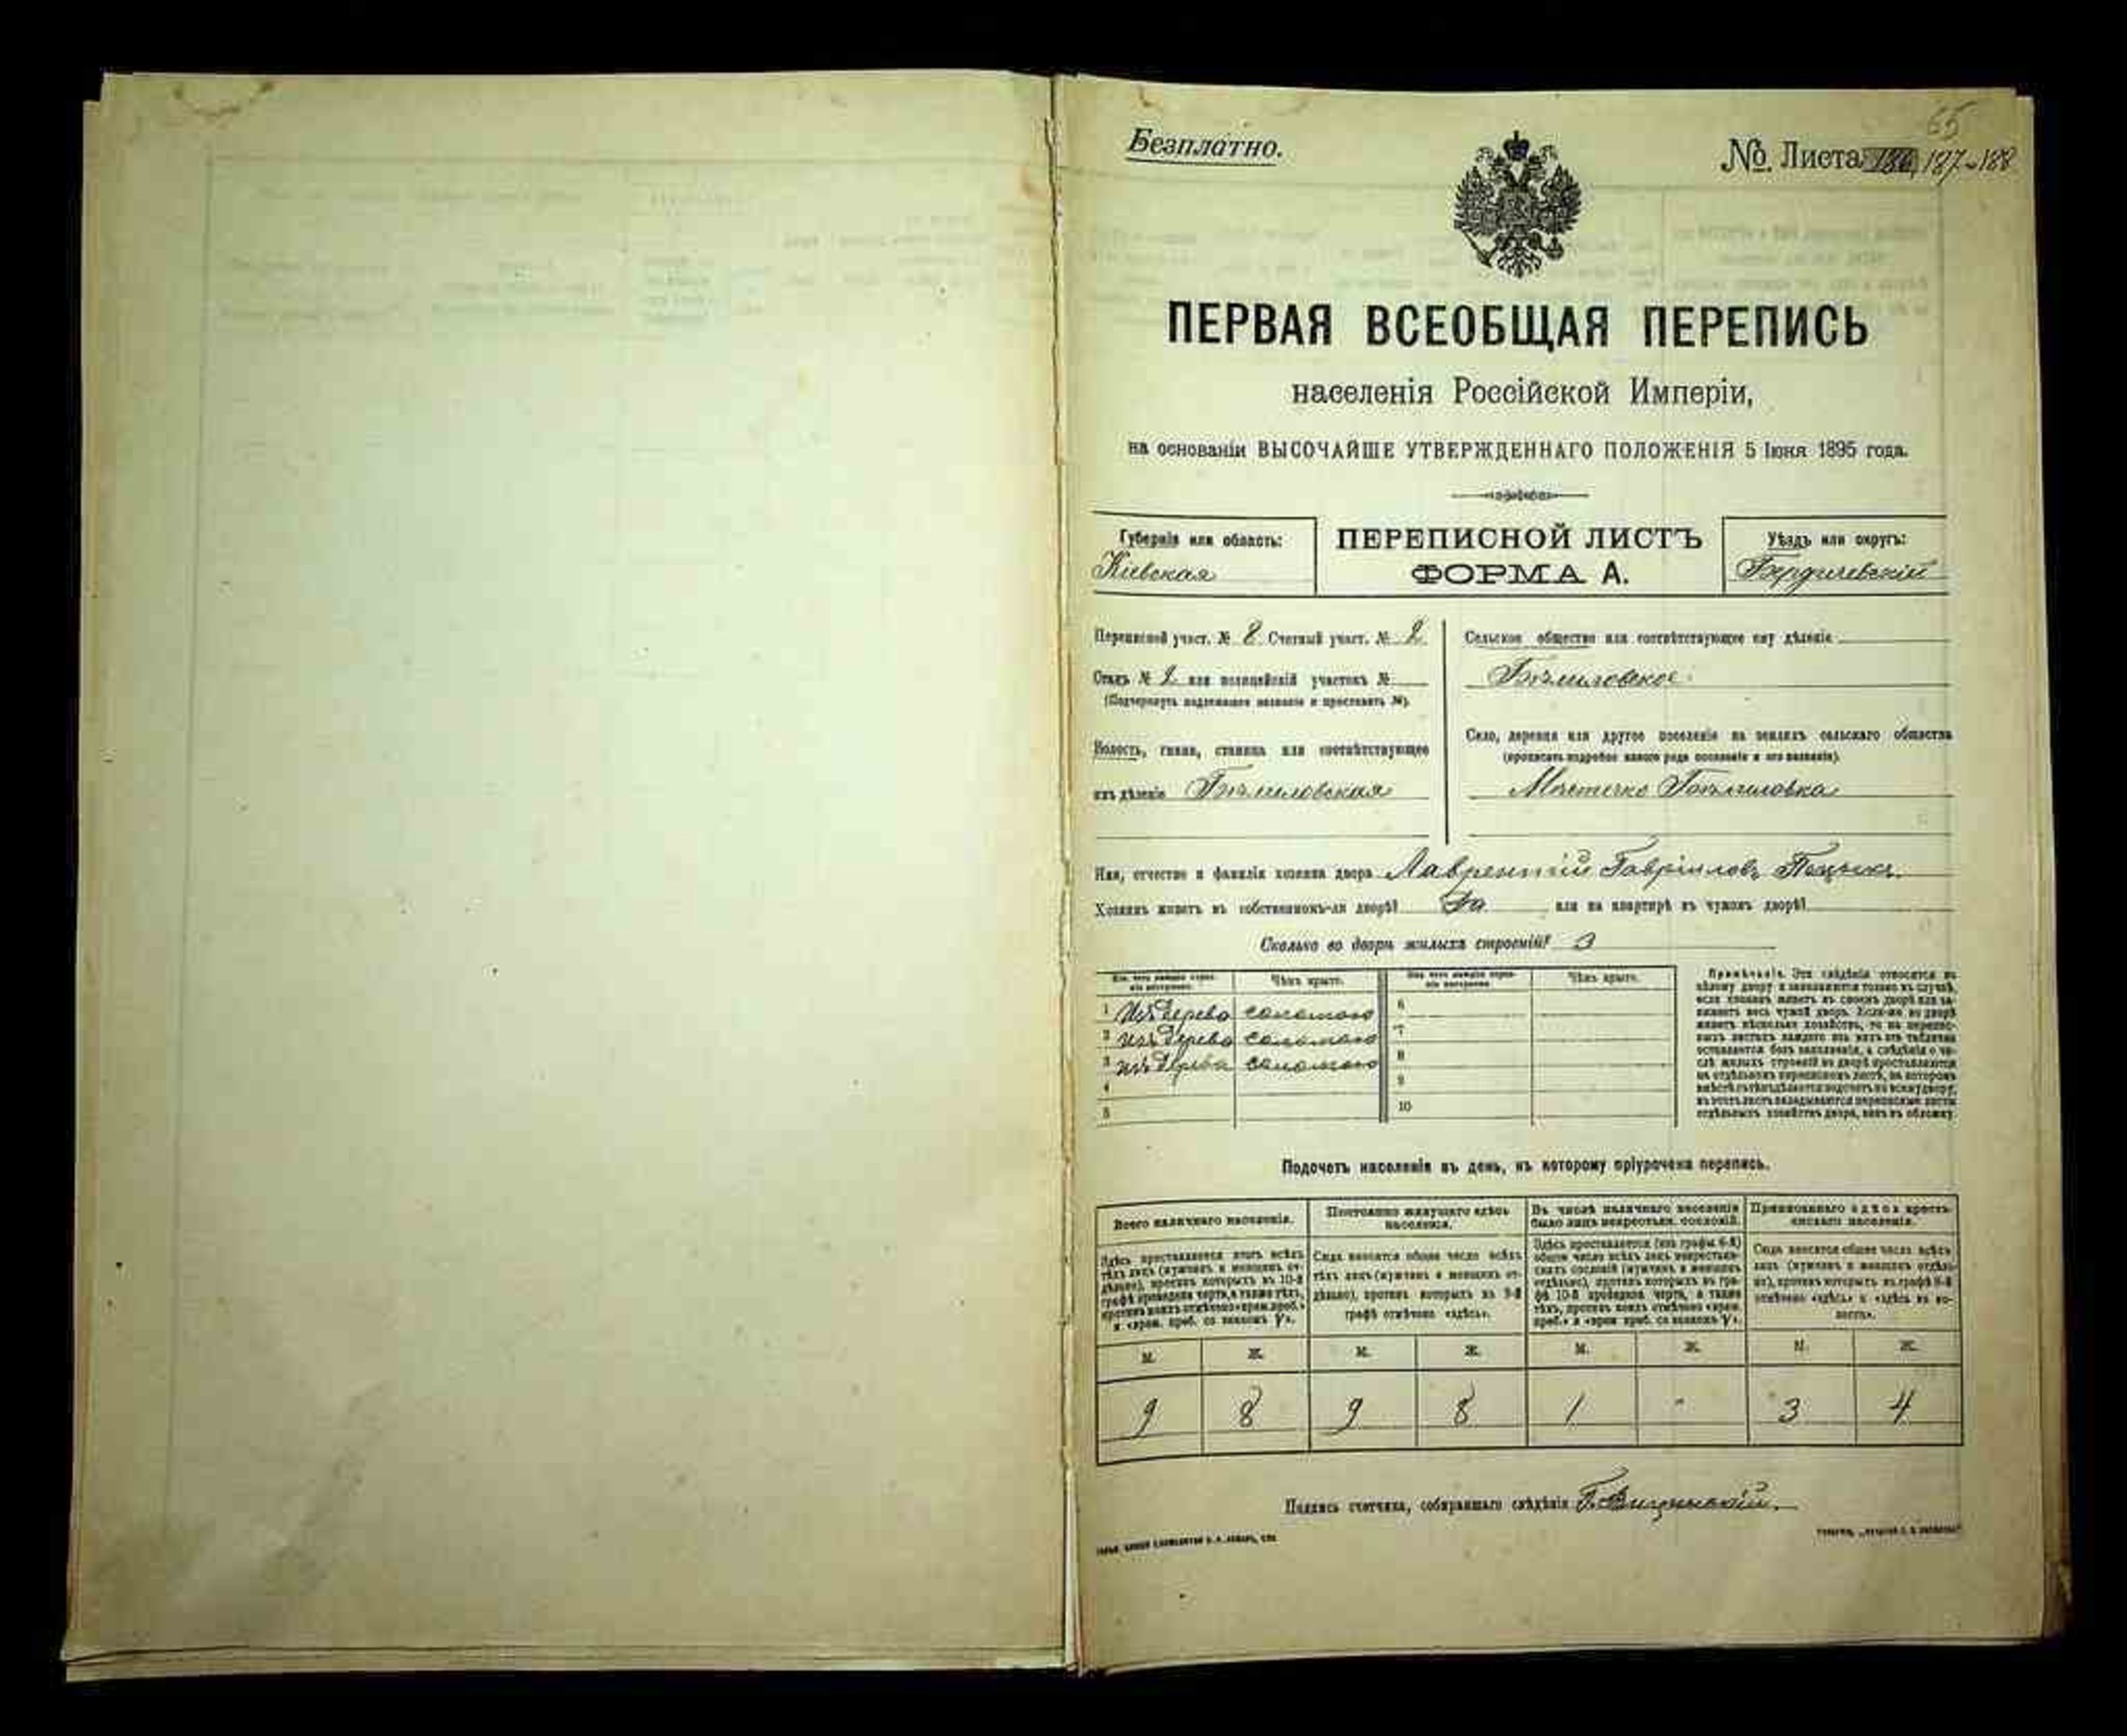 65
Безплатно.
№ Листа 187-188
ПЕРВАЯ ВСЕОБЩАЯ ПЕРЕПИСЬ
населенія Россійской Имперіи,
на основаніи ВЫСОЧАЙШЕ УТВЕРЖДЕННАГО ПОЛОЖЕНІЯ 5 Іюня 1895 года.
Губернія или область:
Кіевская
ПЕРЕПИСНОЙ ЛИСТЪ
ФОРМА А.
Уѣздъ или округъ:
Бердичевскій
Переписной участ. № 8 Счетный участ. № 2
Станъ № 2 или полицейскій участокъ №
(Подчеркнуть надлежащее названіе и проставить №).
Волость, гмина, станица или соотвѣтствующее
имъ дѣленіе
Сельское общество или соотвѣтствующее ему дѣленіе
Село, деревня или другое поселеніе на земляхъ сельскаго общества
(прописать подробно какого рода поселеніе и его названіе).
Мѣстечко
Имя, отчество и фамилія хозяина двора Лаврентій Гавріиловъ
Хозяинъ живетъ въ собственномъ-ли дворѣ? Да или на квартирѣ въ чужомъ дворѣ?
Сколько во дворѣ жилыхъ строеній? 3
Изъ чего каждое строеніе построено. Чѣмъ крыто. Изъ чего каждое строеніе построено. Чѣмъ крыто.
1 Изъ дерева соломою 6
2 изъ дерева соломою 7
3 изъ дерева соломою 8
4 9
5 10
Примѣчаніе. Эти свѣдѣнія относятся къ
цѣлому двору и заполняются только въ случаѣ,
если хозяинъ живетъ въ своемъ дворѣ или за-
нимаетъ весь чужой дворъ. Если-же во дворѣ
живетъ нѣсколько хозяйствъ, то на перепис-
ныхъ листахъ каждаго изъ нихъ эта табличка
оставляется безъ заполненія, а свѣдѣнія о чи-
слѣ жилыхъ строеній во дворѣ проставляются
на отдѣльномъ переписномъ листѣ, на которомъ
вмѣстѣ съ тѣмъ дѣлается подсчетъ по всему двору;
въ этотъ листъ вкладываются переписные листы
отдѣльныхъ хозяйствъ двора, какъ въ обложку.
Подсчетъ населенія въ день, къ которому пріурочена перепись.
Всего наличнаго населенія.
Здѣсь проставляется итогъ всѣхъ
тѣхъ лицъ (мужчинъ и женщинъ от-
дѣльно), противъ которыхъ въ 10-й
графѣ проведена черта, а также тѣхъ,
противъ коихъ отмѣчено «врем. проб.»
и «врем. проб. со знакомъ γ».
Постоянно живущаго здѣсь
населенія.
Сюда вносится общее число всѣхъ
тѣхъ лицъ (мужчинъ и женщинъ от-
дѣльно), противъ которыхъ въ 9-й
графѣ отмѣчено «здѣсь».
Въ числѣ наличнаго населенія
было лицъ некрестьян. сословій.
Здѣсь проставляется (изъ графы 6-й)
общее число всѣхъ лицъ некрестьян-
скихъ сословій (мужчинъ и женщинъ
отдѣльно), противъ которыхъ въ гра-
фѣ 10-й проведена черта, а также
тѣхъ, противъ коихъ отмѣчено «врем.
проб.» и «врем. проб. со знакомъ γ».
Приписаннаго здѣсь кресть-
янскаго населенія.
Сюда вносится общее число всѣхъ
лицъ (мужчинъ и женщинъ отдѣль-
но), противъ которыхъ въ графѣ 8-й
отмѣчено «здѣсь» и «здѣсь въ во-
лости».
М. Ж. М. Ж. М. Ж. М. Ж.
9 8 9 8 1 " 3 4
Подпись счетчика, собиравшаго свѣдѣнія